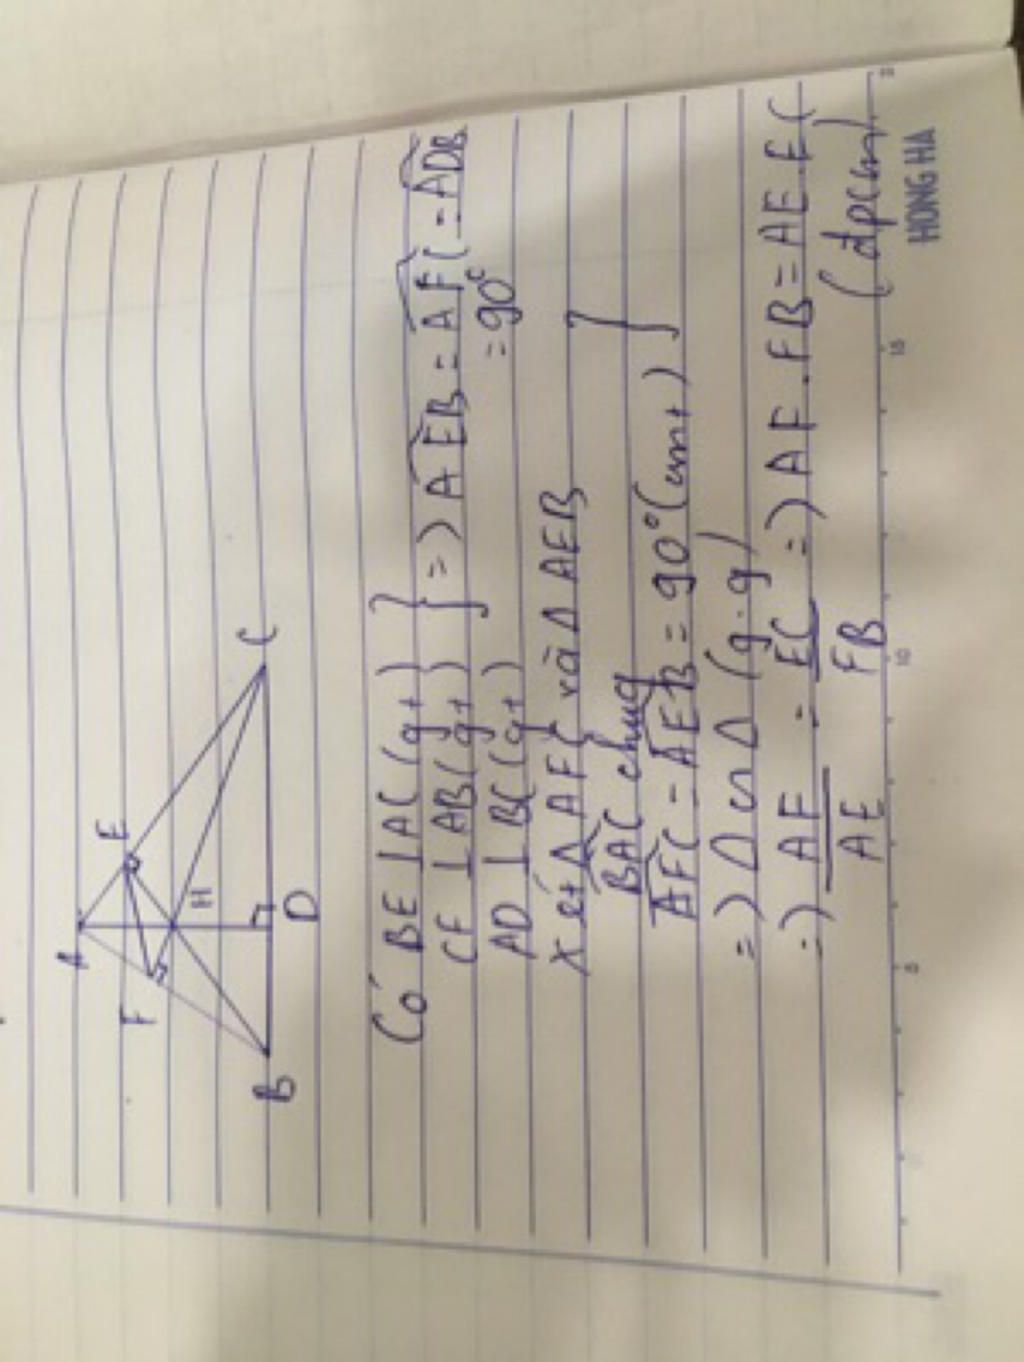 A
F
E
H
B
D
C
Có BE ⊥ AC (gt)
CF ⊥ AB (gt)
AD ⊥ BC (gt)
} => AEB = AFC = ADB
= 90°
Xét Δ AFC và Δ AEB
BAC chung
AFC = AEB = 90° (cmt)
}
=> Δ ∽ Δ (g.g)
=> AF/AE = EC/FB => AF . FB = AE . EC
(đpcm)
5
10
15
HONG HA